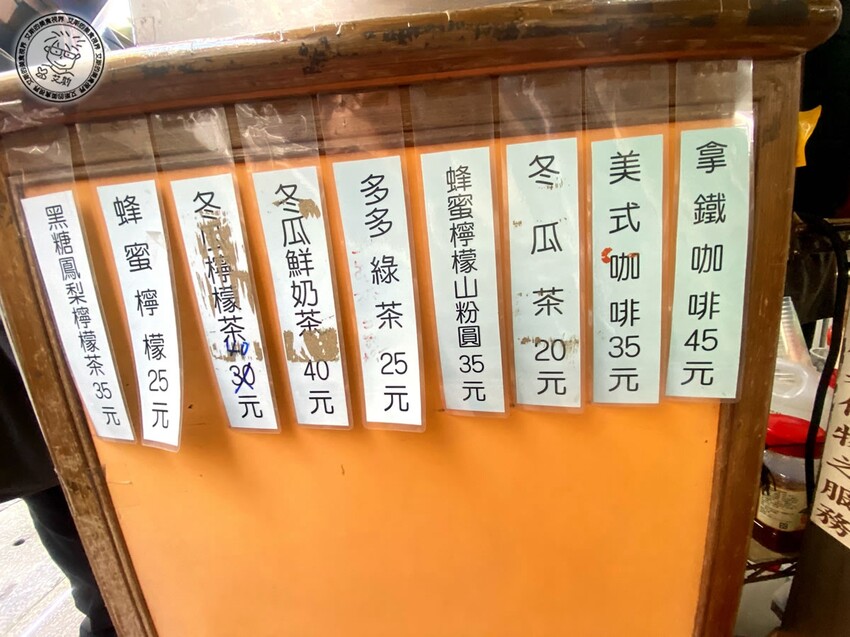 拿鐵咖啡45元
美式咖啡35元
冬瓜茶20元
蜂蜜檸檬山粉圓35元
多多綠茶25元
冬瓜鮮奶茶40元
冬瓜檸檬茶30元
40
蜂蜜檸檬25元
黑糖鳳梨檸檬茶35元
物之服務
艾斯的美食視界